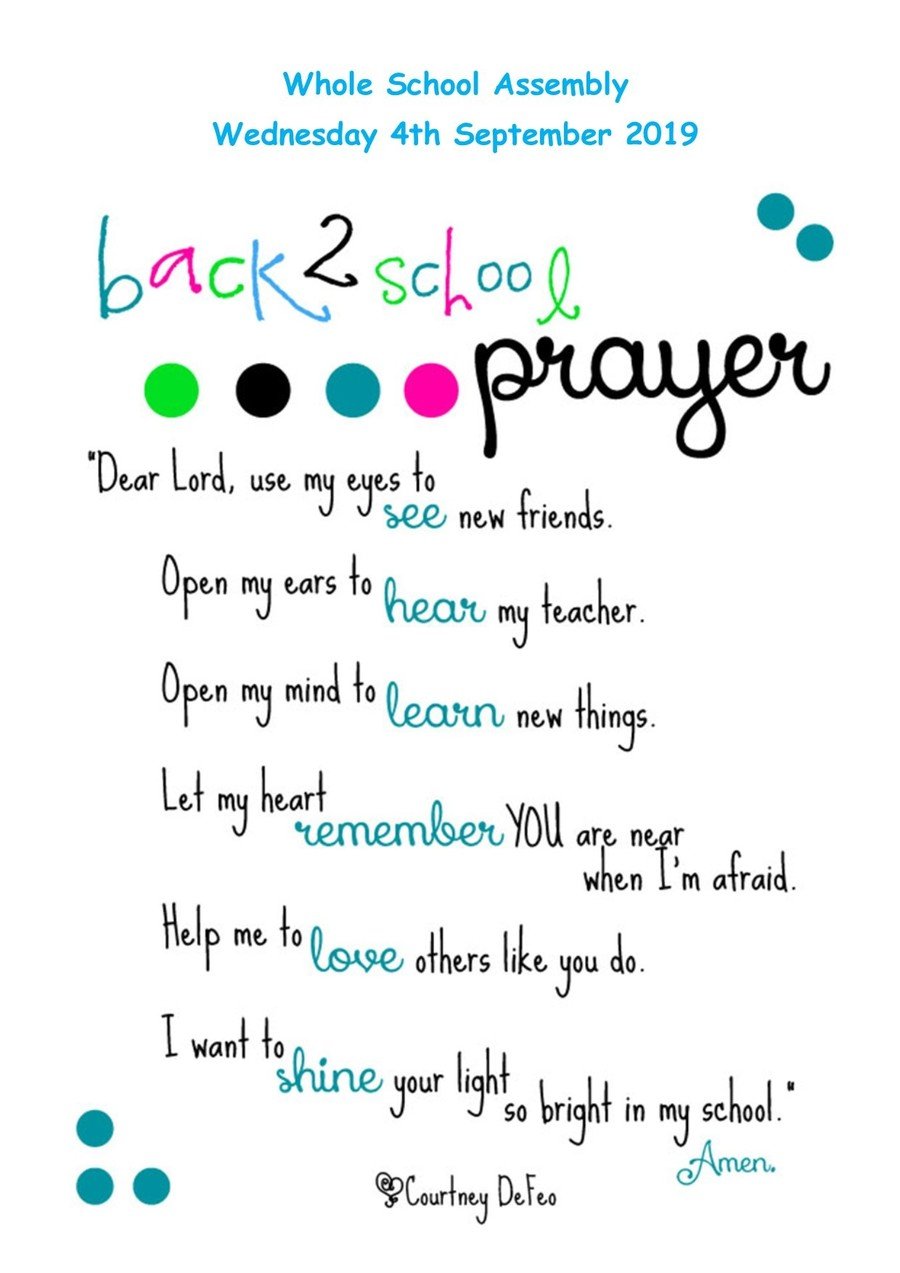 Whole School Assembly
Wednesday 4th September 2019
back2school
prayer
"Dear Lord, use my eyes to
see new friends.
Open my ears to
hear my teacher.
Open my mind to
learn new things.
Let my heart
remember YOU are near
when I'm afraid.
Help me to
love others like you do.
I want to
shine your light
so bright in my school."
Amen.
Courtney DeFeo